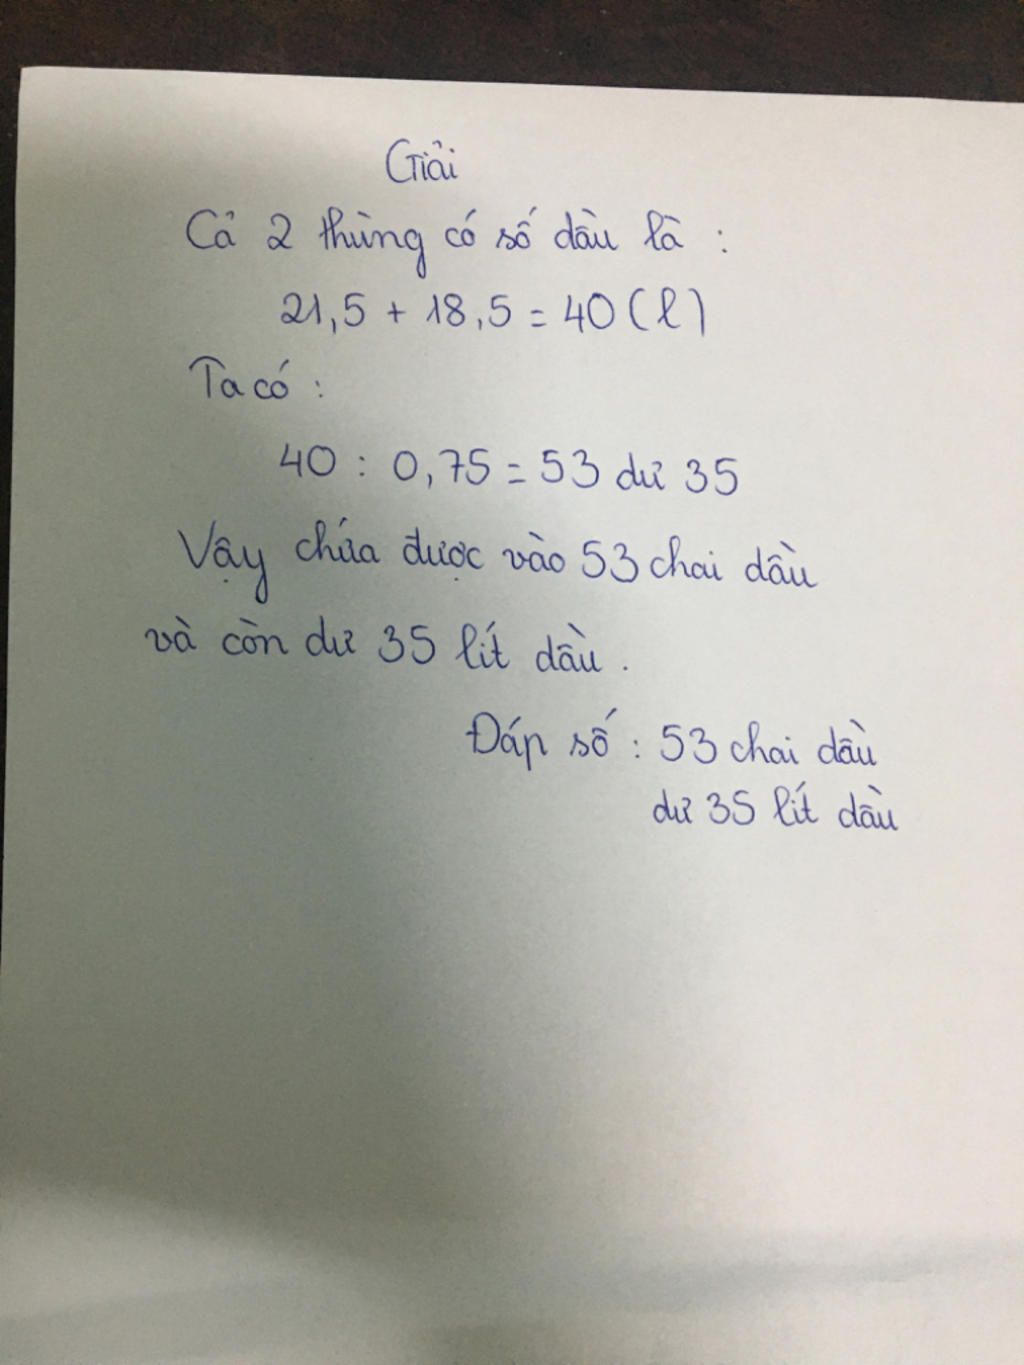 Giải
Cả 2 thùng có số dầu là :
21,5 + 18,5 = 40 (l)
Ta có :
40 : 0,75 = 53 dư 35
Vậy chứa được vào 53 chai dầu
và còn dư 35 lít dầu .
Đáp số : 53 chai dầu
dư 35 lít dầu